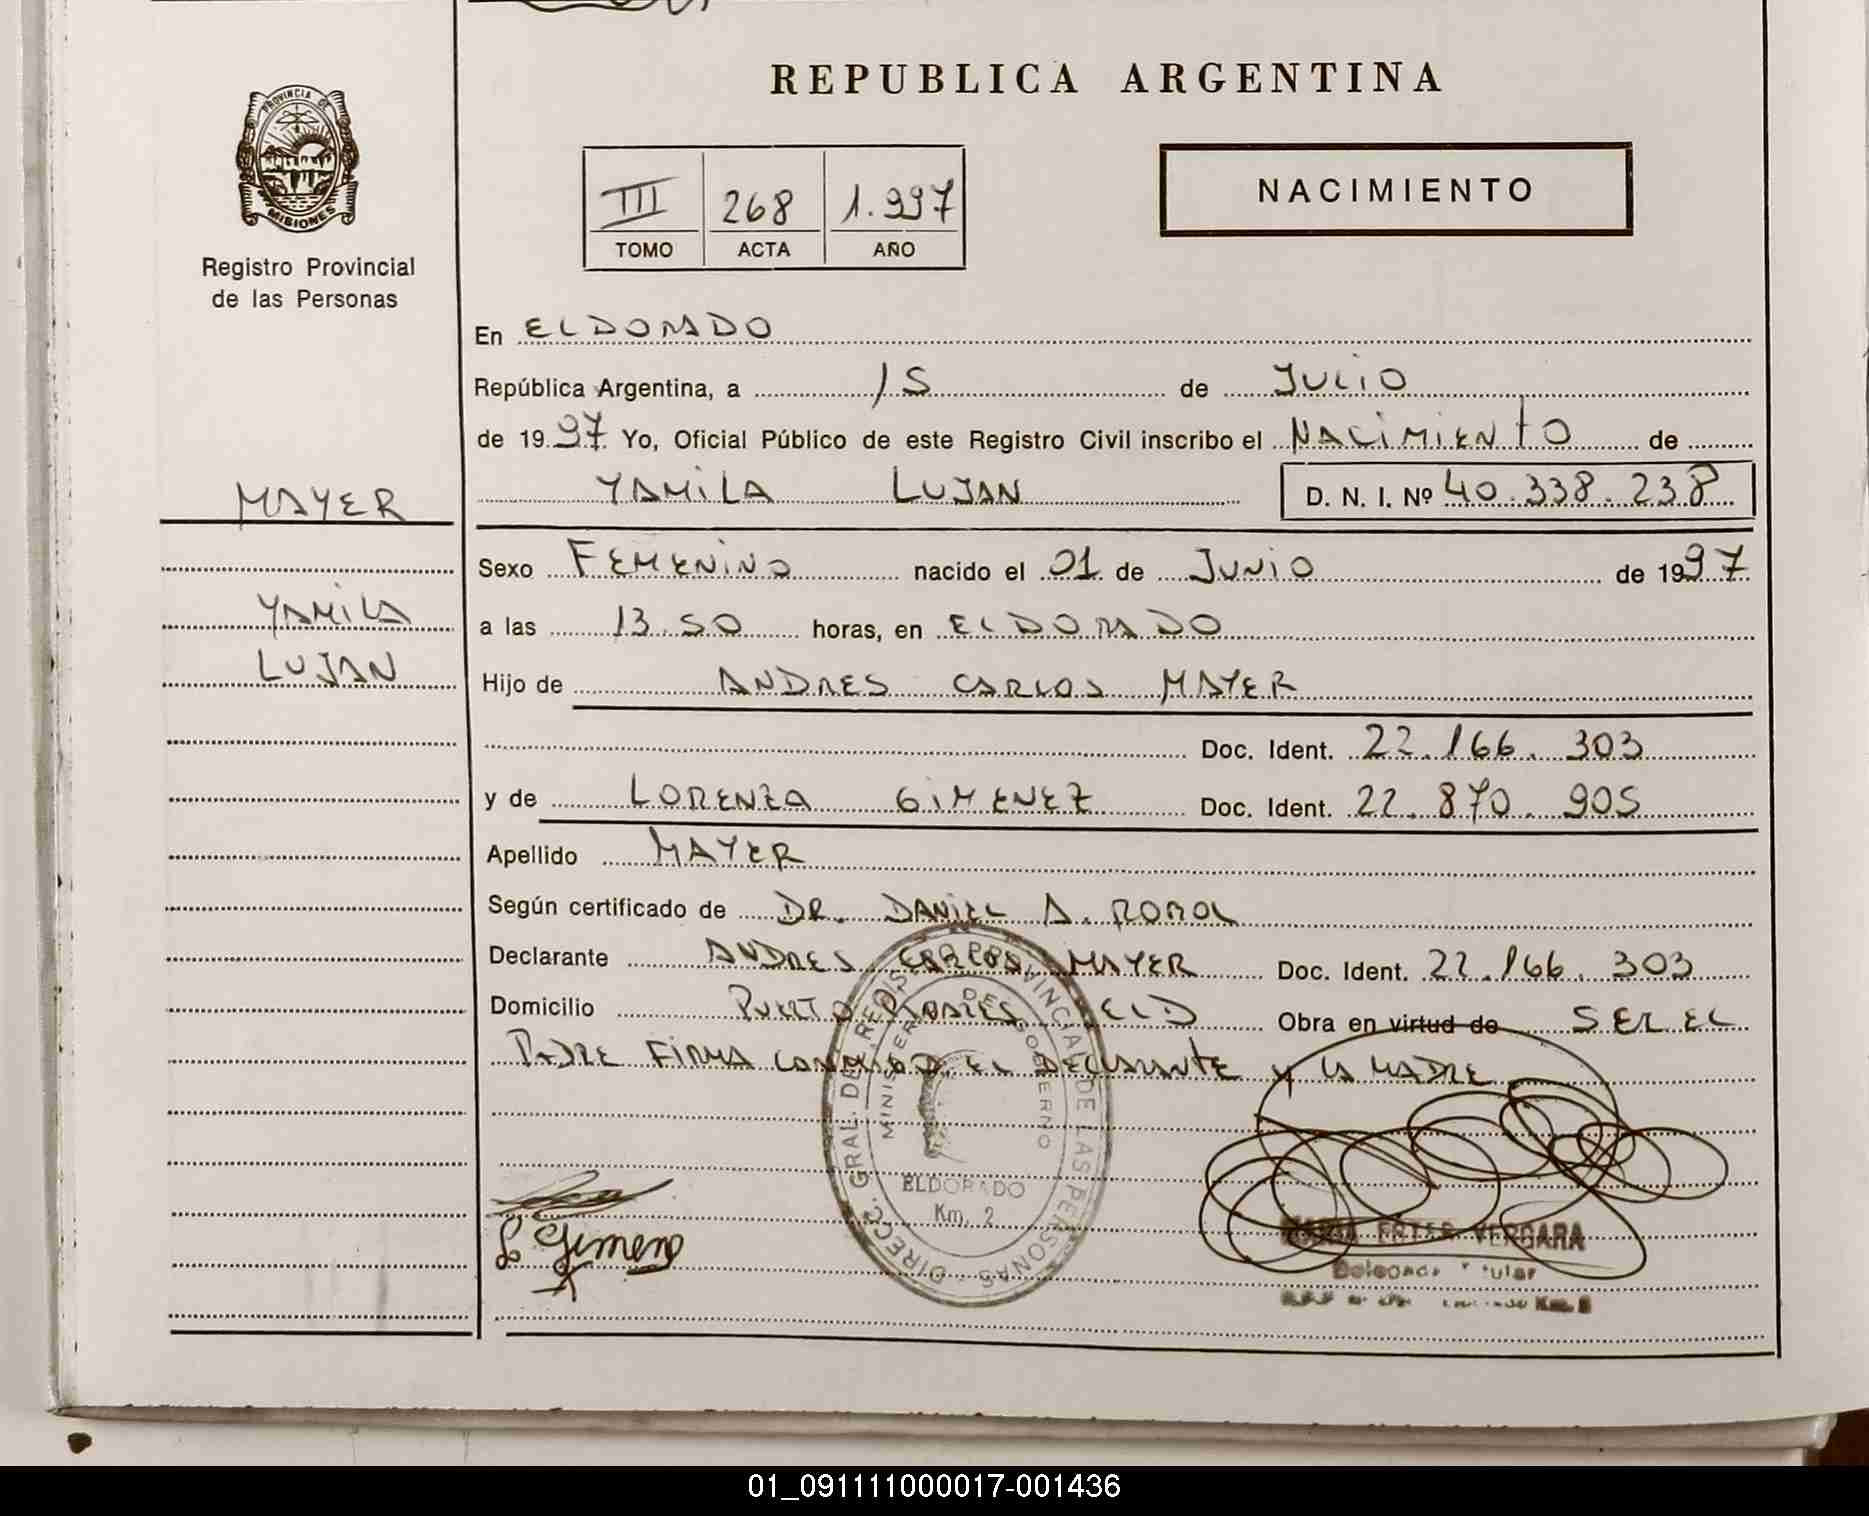 REPUBLICA ARGENTINA
PROVINCIA DE
MISIONES
Registro Provincial
de las Personas
III 268 1.997
TOMO ACTA AÑO
NACIMIENTO
En ELDORADO
República Argentina, a 15 de JULIO
de 1997 Yo, Oficial Público de este Registro Civil inscribo el NACIMIENTO de
YAMILA LUJAN D. N. I. Nº 40.338.238
MAYER
YAMILA
LUJAN
Sexo FEMENINO nacido el 01 de JUNIO de 1997
a las 13.50 horas, en ELDORADO
Hijo de ANDRES CARLOS MAYER
Doc. Ident. 22.166.303
y de LORENZA GIMENEZ Doc. Ident. 22.870.905
Apellido MAYER
Según certificado de DR. DANIEL A.
Declarante ANDRES CARLOS MAYER Doc. Ident. 22.166.303
Domicilio PUERTO ELD Obra en virtud de SER EL
PADRE FIRMA CONMIGO EL DECLARANTE Y LA MADRE
DIRECC. GRAL. DEL REGISTRO PROVINCIAL DE LAS PERSONAS
MINISTERIO DE GOBIERNO
ELDORADO
Km. 2
L. Gimenez
VERGARA
Titular
01_091111000017-001436